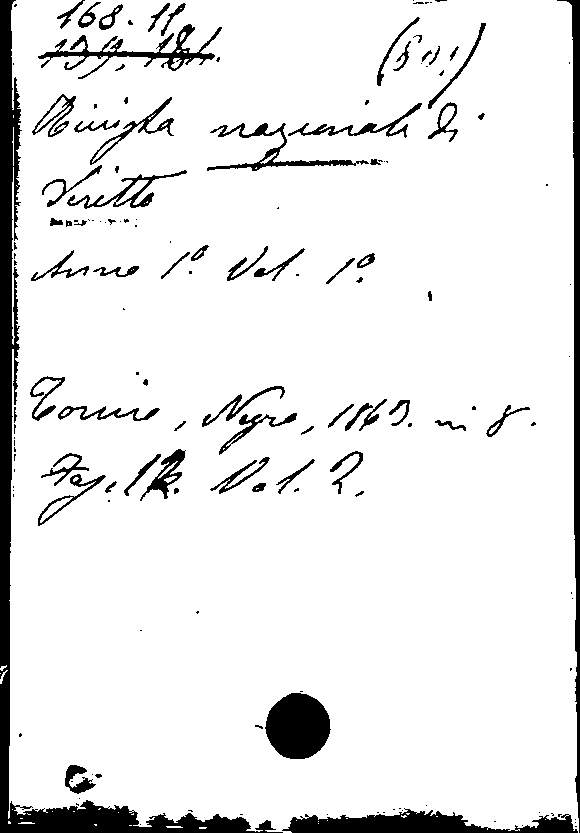 168. 11
139. 181.
Rivista nazionale di
Diritto
Anno 1º. Vol. 1º.
Torino, Negro, 1865. in 8.
Fasc. 12. Vol. 2.